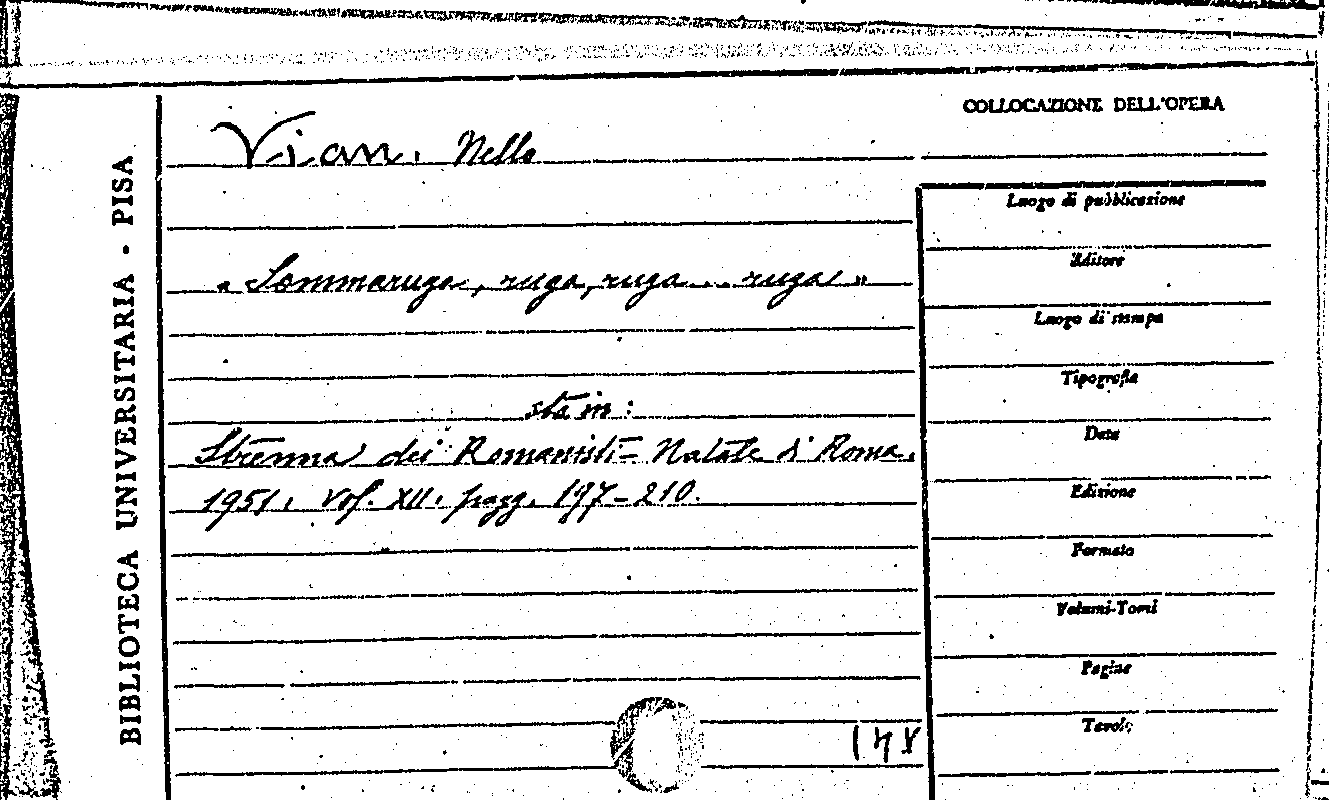 COLLOCAZIONE DELL'OPERA
BIBLIOTECA UNIVERSITARIA - PISA
Vian. Nello
« Sommaruga, ruga, ruga... ruga! »
sta in:
Strenna dei Romanisti = Natale di Roma.
1951. Vol. XII. pagg. 197-210.
Luogo di pubblicazione
Editore
Luogo di stampa
Tipografia
Data
Edizione
Formato
Volumi-Tomi
Pagine
Tavole